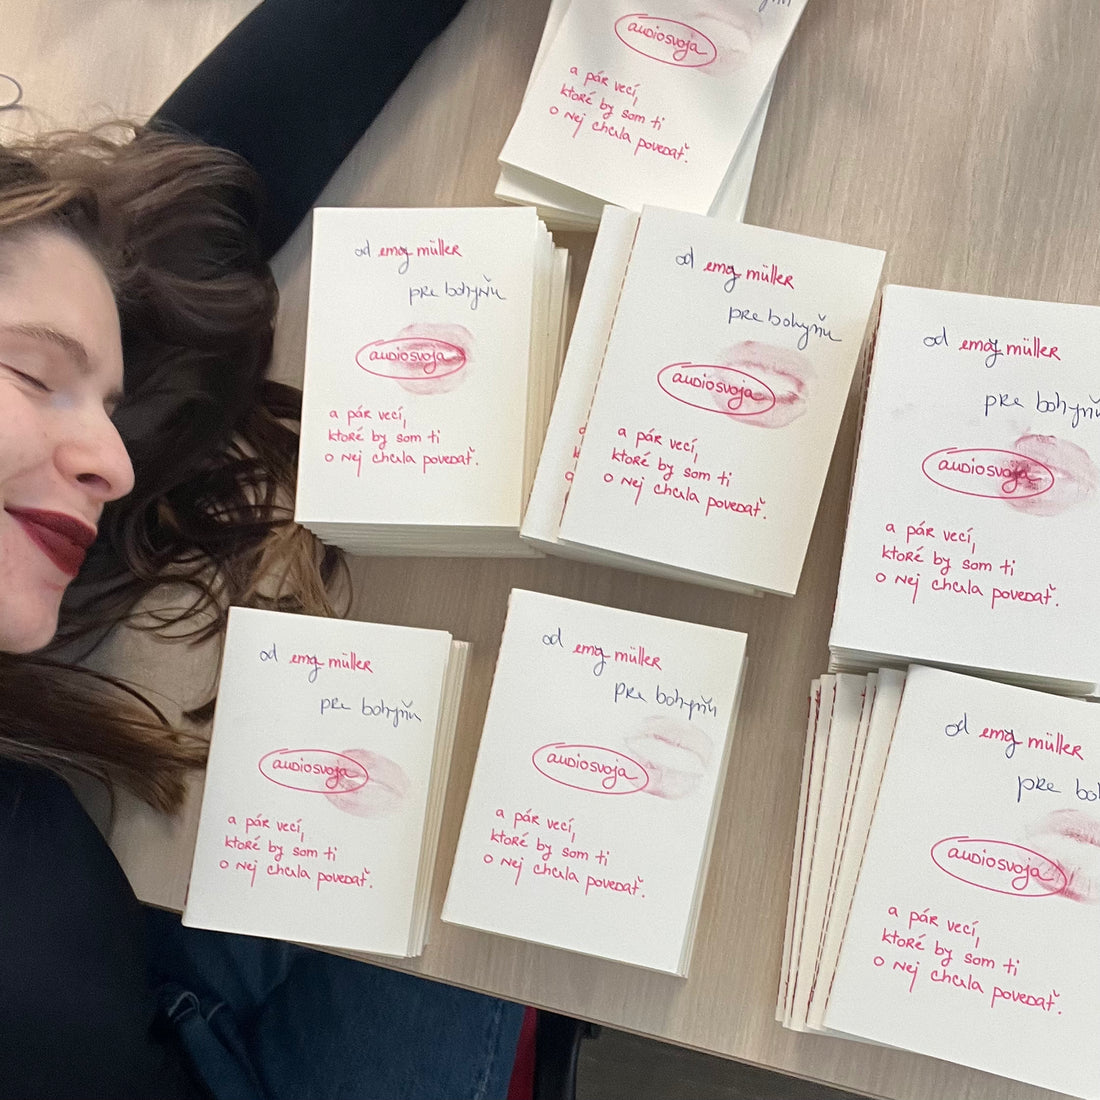 audiosvoja
a pár vecí,
ktoré by som ti
o nej chcela povedať.
od emy müller
pre bohyňu
audiosvoja
a pár vecí,
ktoré by som ti
o nej chcela povedať.
od emy müller
pre bohyňu
audiosvoja
a pár vecí,
ktoré by som ti
o nej chcela povedať.
od emy müller
pre bohyňu
audiosvoja
a pár vecí,
ktoré by som ti
o nej chcela povedať.
od emy müller
pre bohyňu
audiosvoja
a pár vecí,
ktoré by som ti
o nej chcela povedať.
od emy müller
pre bohyňu
audiosvoja
a pár vecí,
ktoré by som ti
o nej chcela povedať.
od emy müller
pre
audiosvoja
a pár vecí,
ktoré by som ti
o nej chcela povedať.